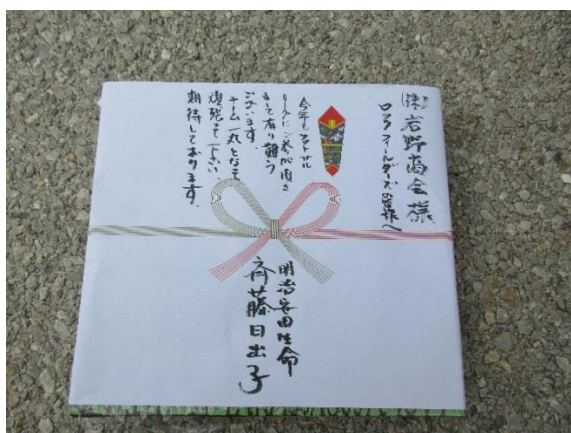 ㈱岩野商会様
ロックフィールダーズの皆様へ
今年もフットサル
リーグにご参加頂き
まして有り難う
ございます
チーム一丸となって
頑張って下さい
期待しております。
明治安田生命
斉藤日出子